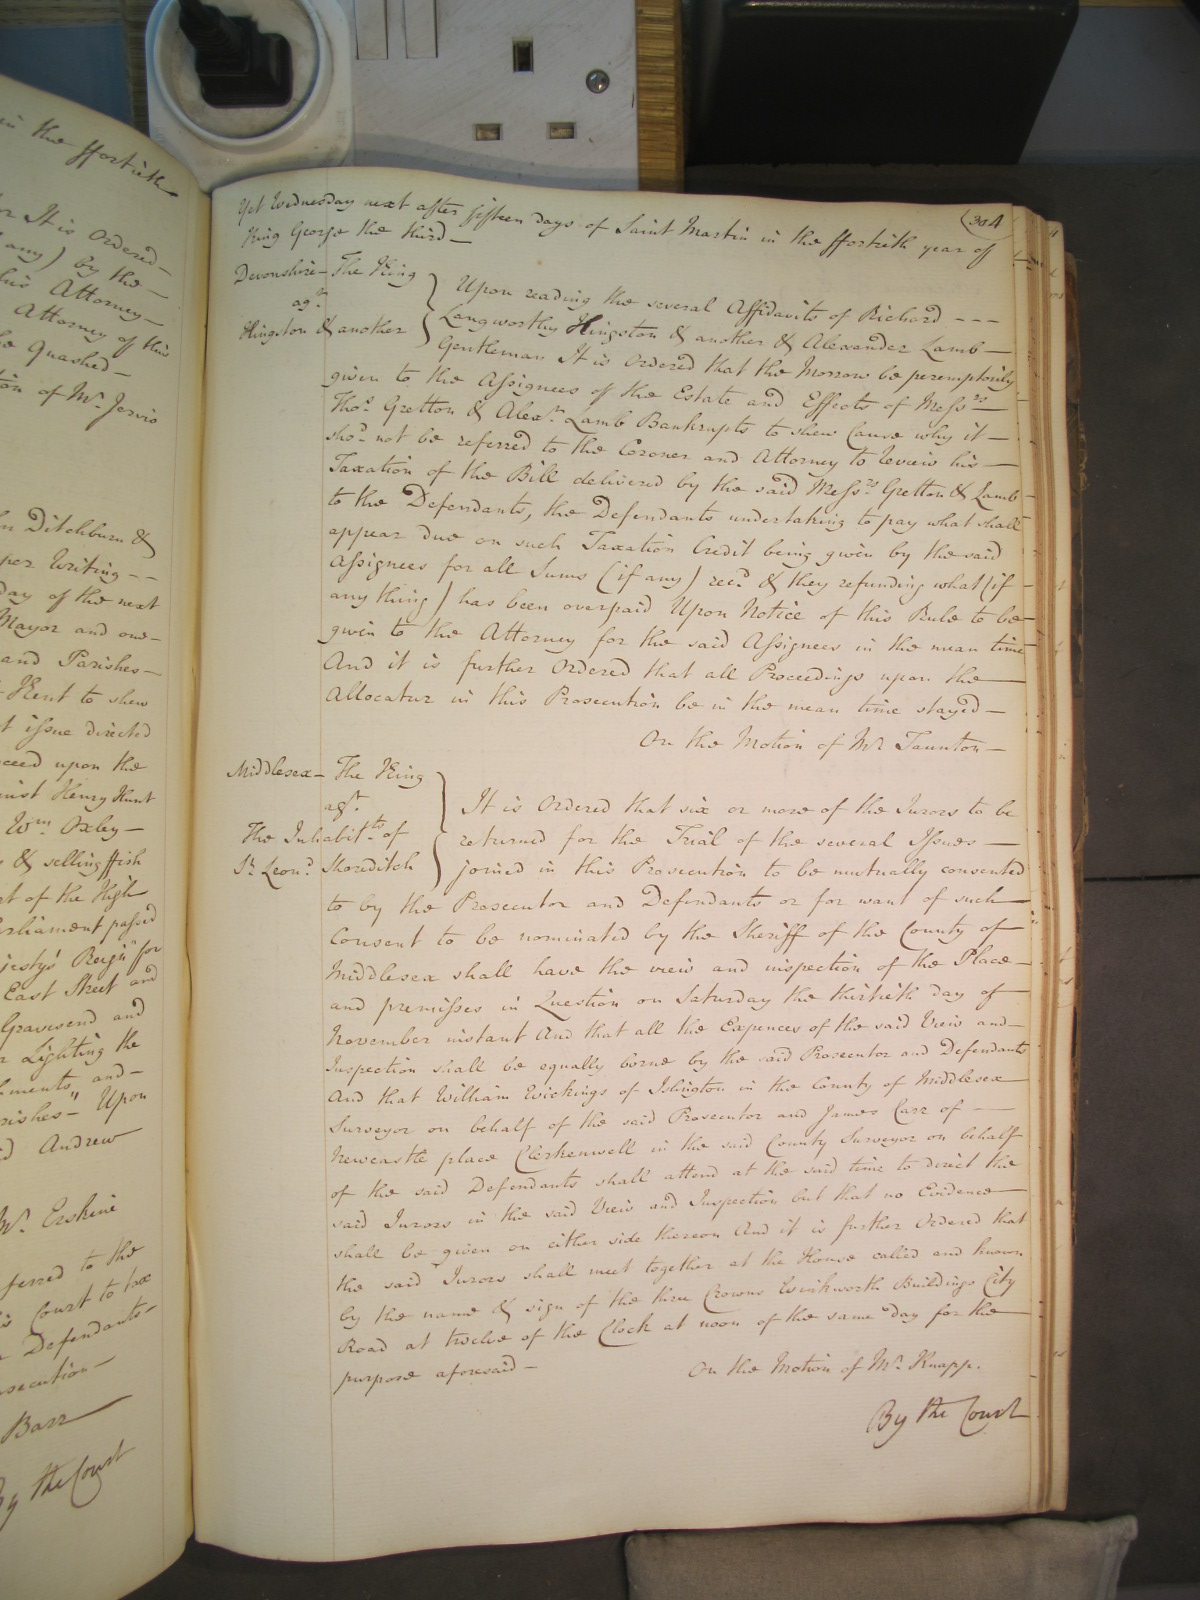 in the ffortieth
It is Ordered
any) by the
his Attorney
Attorney of this
be Quashed
of Mr. Jervis
Ditchburn &
per Writing
day of the next
Mayor and one
and Parishes
Kent to shew
issue directed
upon the
Henry Hunt
Wm. Oxley
& selling ffish
of the High
Parliament passed
Majestys Reign "for
East Street and
Gravesend and
Lighting the
and
Parishes" Upon
Andrew
Mr. Erskine
referred to the
Court to tax
Defendants
Prosecution
Barr
By the Court
304
Yet Wednesday next after fifteen days of Saint Martin in the ffortieth year of
King George the third
Devonshire The King
agt.
Hingston & another
Upon reading the several Affidavits of Richard
Langworthy Hingston & another & Alexander Lamb
Gentleman It is Ordered that the Morrow be peremptorily
given to the Assignees of the Estate and Effects of Messrs
Thos. Gretton & Alexr. Lamb Bankrupts to shew Cause why it
shod. not be referred to the Coroner and Attorney to review his
Taxation of the Bill delivered by the said Messrs Gretton & Lamb
to the Defendants, the Defendants undertaking to pay what shall
appear due on such Taxation Credit being given by the said
Assignees for all Sums (if any) recd. & they refunding what (if
any thing) has been overpaid Upon Notice of this Rule to be
given to the Attorney for the said Assignees in the mean time
And it is further Ordered that all Proceedings upon the
Allocatur in this Prosecution be in the mean time stayed
On the Motion of Mr. Taunton
Middlesex The King
agt.
The Inhabitts. of
St. Leond. Shoreditch
It is Ordered that six or more of the Jurors to be
returned for the Trial of the several Issues
joined in this Prosecution to be mutually consented
to by the Prosecutor and Defendants or for want of such
Consent to be nominated by the Sheriff of the County of
Middlesex shall have the view and inspection of the Place
and premisses in Question on Saturday the thirtieth day of
November instant And that all the Expences of the said View and
Inspection shall be equally borne by the said Prosecutor and Defendants
And that William Wickings of Islington in the County of Middlesex
Surveyor on behalf of the said Prosecutor and James Carr of
Newcastle place Clerkenwell in the said County Surveyor on behalf
of the said Defendants shall attend at the said time to direct the
said Jurors in the said View and Inspection but that no Evidence
shall be given on either side thereon And it is further Ordered that
the said Jurors shall meet together at the House called and known
by the name & sign of the three Crowns Winkworth Buildings City
Road at twelve of the Clock at noon of the same day for the
purpose aforesaid
On the Motion of Mr. Knapp.
By the Court